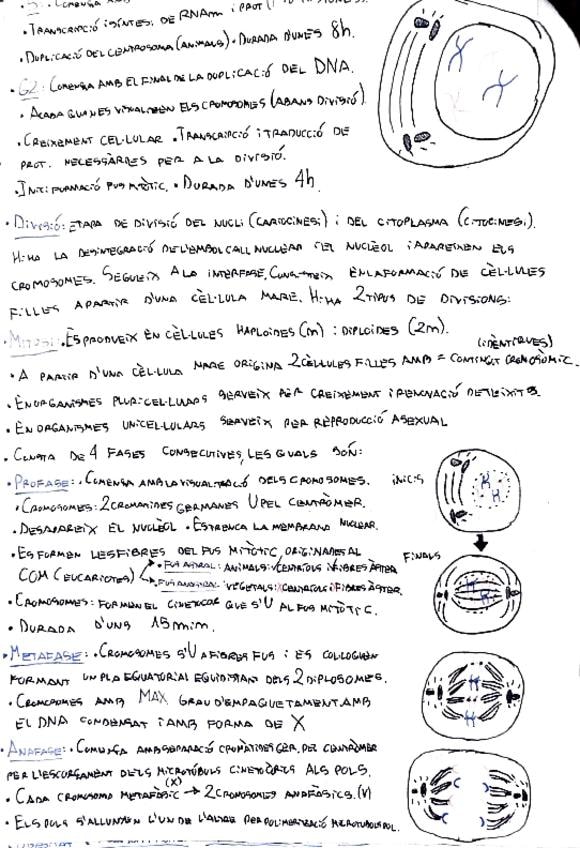 • TRANSCRIPCIÓ I SÍNTESI DE RNAm I PROT
• DUPLICACIÓ DEL CENTROSOMA (ANIMALS) • DURADA D'UNES 8h.
• G2: COMENÇA AMB EL FINAL DE LA DUPLICACIÓ DEL DNA.
• ACABA QUAN ES VISUALITZEN ELS CROMOSOMES (ABANS DIVISIÓ)
• CREIXEMENT CEL·LULAR • TRANSCRIPCIÓ I TRADUCCIÓ DE
PROT. NECESSÀRIES PER A LA DIVISIÓ.
• INICI FORMACIÓ FUS MITÒTIC. • DURADA D'UNES 4h
• DIVISIÓ: ETAPA DE DIVISIÓ DEL NUCLI (CARIOCINESI) I DEL CITOPLASMA (CITOCINESI).
HI HA LA DESINTEGRACIÓ DE L'EMBOLCALL NUCLEAR I EL NUCLÈOL I APAREIXEN ELS
CROMOSOMES. SEGUEIX A LA INTERFASE. CONSISTEIX EN LA FORMACIÓ DE CÈL·LULES
FILLES A PARTIR D'UNA CÈL·LULA MARE. HI HA 2 TIPUS DE DIVISIONS:
• MITOSI: • ES PRODUEIX EN CÈL·LULES HAPLOIDES (m) I DIPLOIDES (2m).
(IDÈNTIQUES)
• A PARTIR D'UNA CÈL·LULA MARE ORIGINA 2 CÈL·LULES FILLES AMB = CONTINGUT CROMOSÒMIC.
• EN ORGANISMES PLURICEL·LULARS SERVEIX PER CREIXEMENT I RENOVACIÓ DE TEIXITS.
• EN ORGANISMES UNICEL·LULARS SERVEIX PER REPRODUCCIÓ ASEXUAL
• CONSTA DE 4 FASES CONSECUTIVES, LES QUALS SÓN:
• PROFASE: • COMENÇA AMB LA VISUALITZACIÓ DELS CROMOSOMES. INICIS
• CROMOSOMES: 2 CROMÀTIDES GERMANES U PEL CENTRÒMER.
• DESAPAREIX EL NUCLÈOL • ES TRENCA LA MEMBRANA NUCLEAR.
• ES FORMEN LES FIBRES DEL FUS MITÒTIC, ORIGINADES AL FINALS
COM (EUCARIOTES) • FUS ASTRAL: ANIMALS: ✓CENTRÍOLS I FIBRES ÀSTER
• FUS ANASTRAL: VEGETALS: X CENTRÍOLS I FIBRES ÀSTER.
• CROMOSOMES: FORMEN EL CINETOCOR QUE S'U AL FUS MITÒTIC.
• DURADA D'UNS 15 mim.
• METAFASE: • CROMOSOMES S'U A FIBRES FUS I ES COL·LOQUEN
FORMANT UN PLA EQUATORIAL EQUIDISTANT DELS 2 DIPLOSOMES.
• CROMOSOMES AMB MAX GRAU D'EMPAQUETAMENT AMB
EL DNA CONDENSAT I AMB FORMA DE X
• ANAFASE: • COMENÇA AMB SEPARACIÓ CROMÀTIDES GER. PEL CENTRÒMER
PER L'ESCURÇAMENT DELS MICROTÚBULS CINETOCÒRICS ALS POLS.
(X)
• CADA CROMOSOMA METAFÀSIC → 2 CROMOSOMES ANAFÀSICS. (V)
• ELS POLS S'ALLUNYEN L'UN DE L'ALTRE PER POLIMERITZACIÓ MICROTUBULS POL.